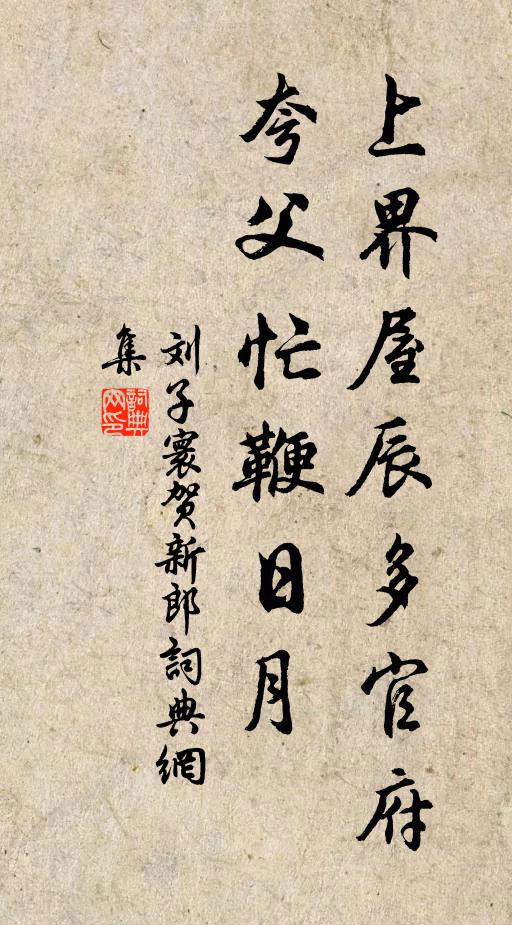 上界屋辰多官府
夸父忙鞭日月
刘子寰贺新郎詞典網
集
詞典網印